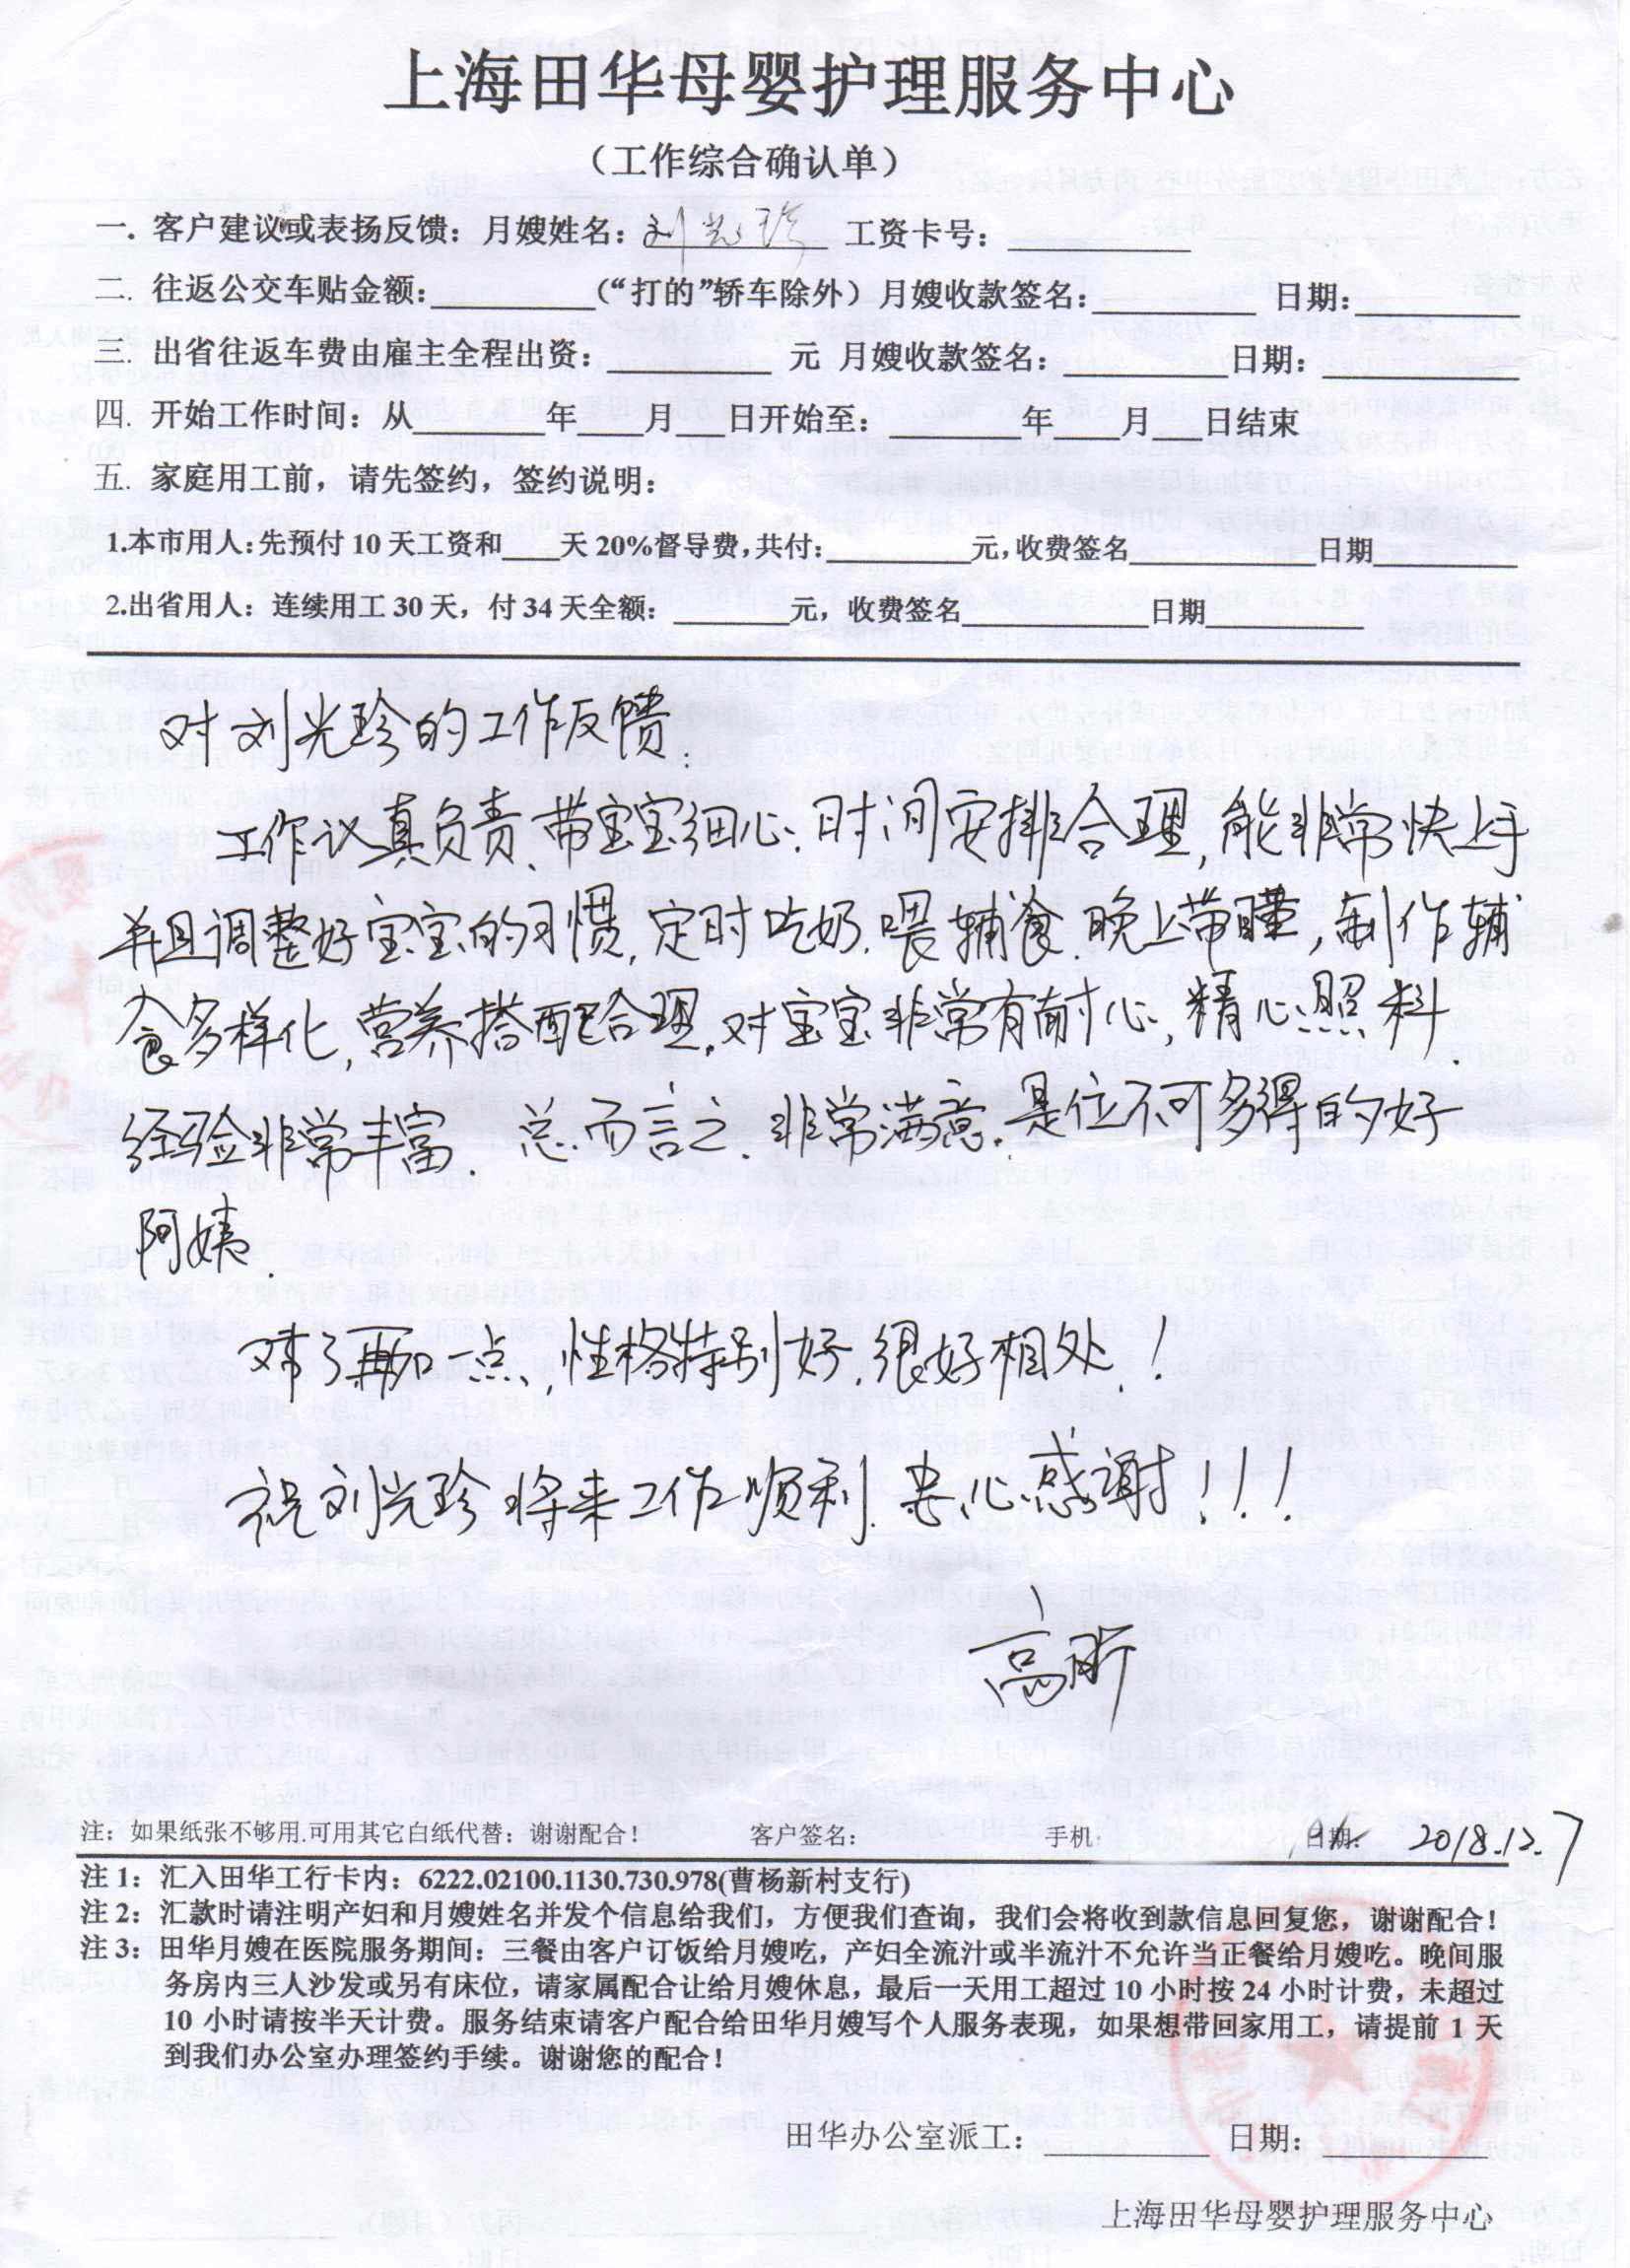 上海田华母婴护理服务中心
（工作综合确认单）
一. 客户建议或表扬反馈：月嫂姓名：刘光珍 工资卡号：________
二. 往返公交车贴金额：________（“打的”轿车除外）月嫂收款签名：________ 日期：________
三. 出省往返车费由雇主全程出资：________ 元 月嫂收款签名：________日期：________
四. 开始工作时间：从______年___月___日开始至：______年___月___日结束
五. 家庭用工前，请先签约，签约说明：
1.本市用人：先预付 10 天工资和___天 20%督导费，共付：________元，收费签名________日期________
2.出省用人：连续用工 30 天，付 34 天全额：______元，收费签名________日期________
对刘光珍的工作反馈：
工作认真负责、带宝宝细心、时间安排合理，能非常快上手
并且调整好宝宝的习惯，定时吃奶、喂辅食、晚上带睡，制作辅
食多样化，营养搭配合理，对宝宝非常有耐心，精心照料．
经验非常丰富．总而言之．非常满意．是位不可多得的好
阿姨．
对了再加一点，性格特别好，很好相处！
祝刘光珍将来工作顺利．衷心感谢！！！
高
注：如果纸张不够用.可用其它白纸代替：谢谢配合！ 客户签名： 手机： 日期: 2018.12.7
注 1：汇入田华工行卡内：6222.02100.1130.730.978(曹杨新村支行)
注 2：汇款时请注明产妇和月嫂姓名并发个信息给我们，方便我们查询，我们会将收到款信息回复您，谢谢配合！
注 3：田华月嫂在医院服务期间：三餐由客户订饭给月嫂吃，产妇全流汁或半流汁不允许当正餐给月嫂吃。晚间服
务房内三人沙发或另有床位，请家属配合让给月嫂休息，最后一天用工超过 10 小时按 24 小时计费，未超过
10 小时请按半天计费。服务结束请客户配合给田华月嫂写个人服务表现，如果想带回家用工，请提前 1 天
到我们办公室办理签约手续。谢谢您的配合！
田华办公室派工：________ 日期：________
上海田华母婴护理服务中心